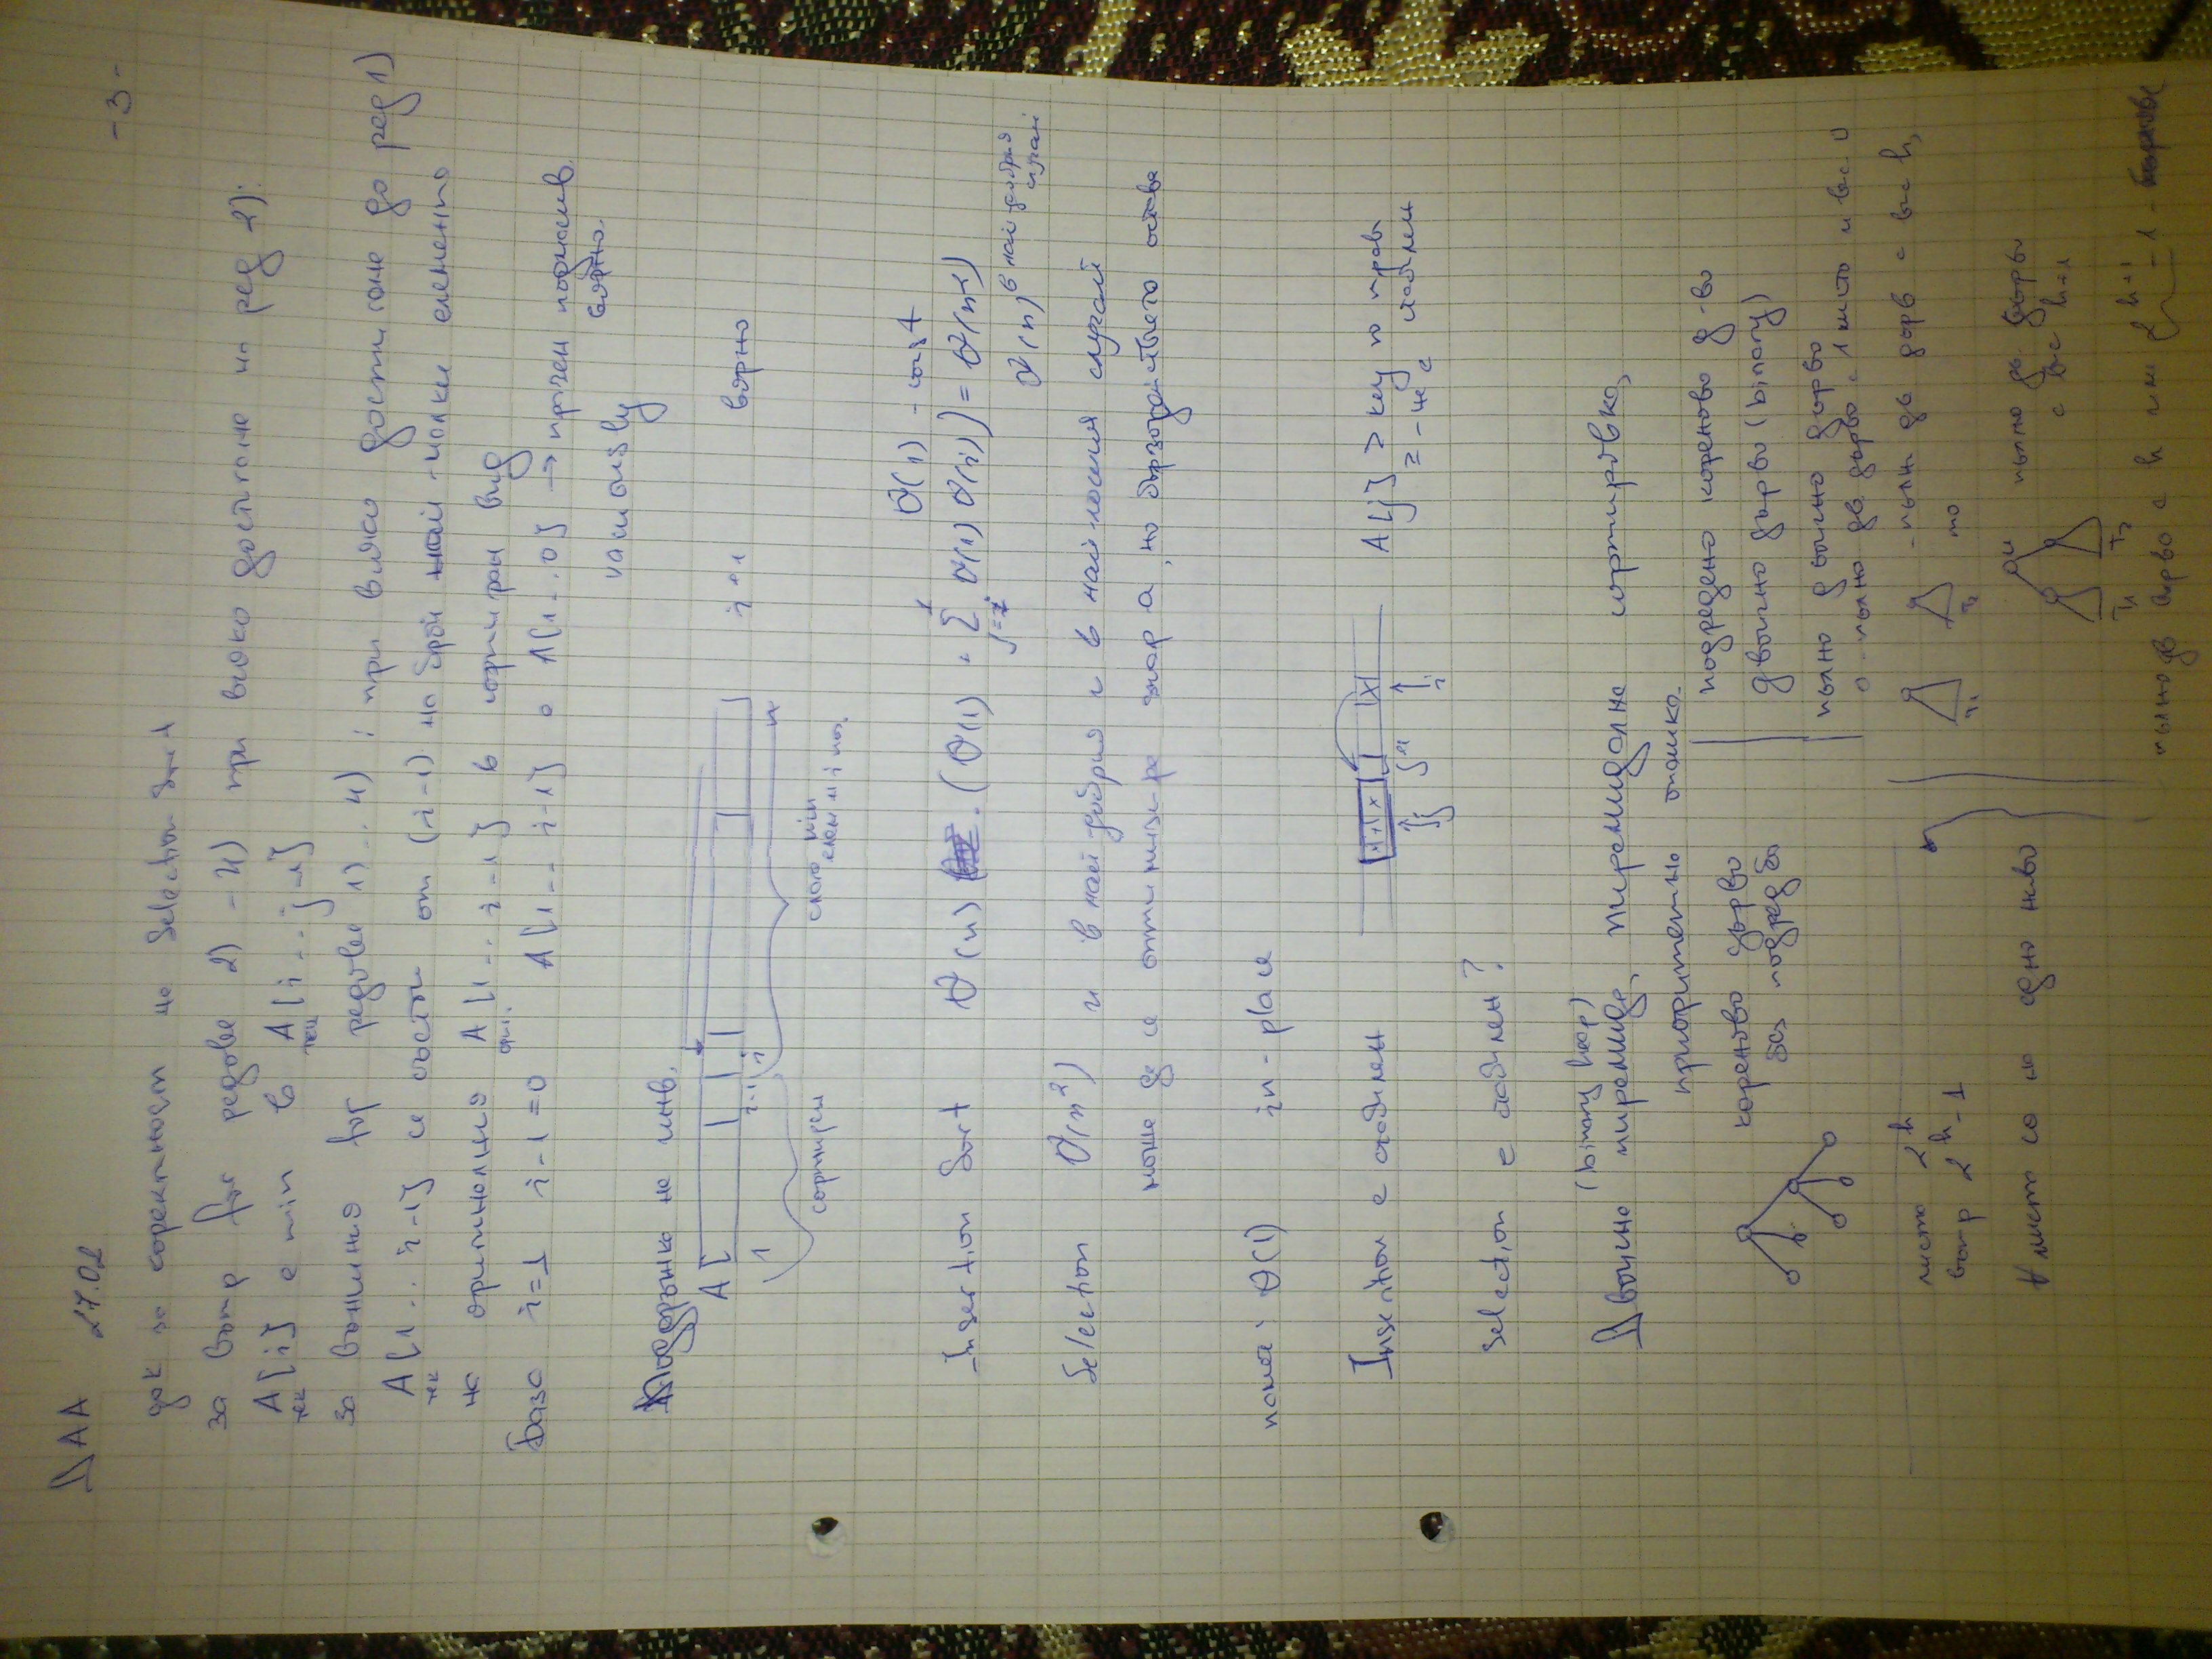 ДАА 27.02 -3-
док за коректност на Selection Sort
за вътр for редове 2) - 4) при всяко достигане на ред 2):
A[i] е min в A[i...j-1]
тек тек
за външния for редове 1)...4): при всяко достигане до ред 1)
A[1...i-1] се състои от (i-1) на брой най-малки елементи
тек
на оригиналния A[1...i-1] в сортиран вид
ориг.
База i=1 i-1=0 A[1...i-1] е A[1...0] → празен масив
vacuously вярно.
Поддръжка на инв. i+1 вярно
A[
1 i-1 i n
сортиран
само min елем
Θ(1) - const
Insertion Sort Θ(n) . (Θ(1) + Σ Θ(1) Θ(1)) = Θ(n²)
Θ(n) в най-добрия случай
Selection Θ(n²) и в най-добрия и в най-лошия случай
може да се оптимизира, но бързодействието остава
памет: Θ(1) in-place
Insertion е стабилен A[j] > key то прави
≥ - не е стабилен
j j+1 i
Selection е стабилен?
(binary heap)
Двоично пирамида, пирамидална сортировка,
приоритетно опашка.
кореново дърво
без подредба
подредено кореново д-во
двоично дърво (binary)
пълно двоично дърво
0 - пълно дв дърво с 1 листо и вис 0
- пълни дв дърв с вис h,
T1 T2 то
u
T1 T2
пълно дв. дърво
с вис h+1
листа 2^h
вътр 2^h - 1
∀ листа са на едно ниво
пълно дв дърво с h има 2^{h+1} - 1 - върхове